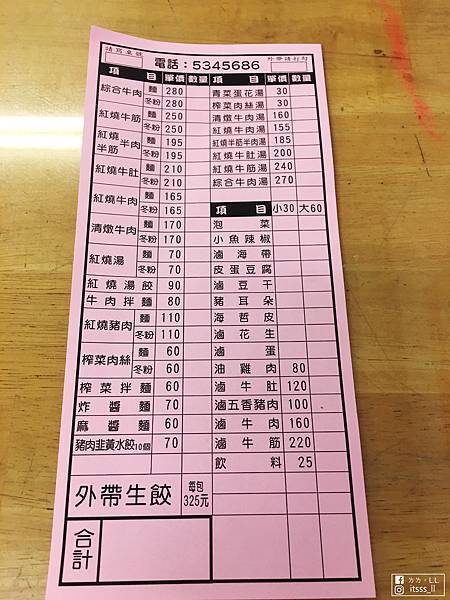 請寫桌號
電話：5345686
外帶請打勾
項 目 單價 數量
綜合牛肉 麵 280
冬粉 280
紅燒牛筋 麵 250
冬粉 250
紅燒半肉半筋 麵 195
冬粉 195
紅燒牛肚 麵 210
冬粉 210
紅燒牛肉 麵 165
冬粉 165
清燉牛肉 麵 170
冬粉 170
紅燒湯 麵 70
冬粉 70
紅燒湯餃 90
牛肉拌麵 80
紅燒豬肉 麵 110
冬粉 110
榨菜肉絲 麵 60
冬粉 60
榨菜拌麵 60
炸醬麵 70
麻醬麵 60
豬肉韭黃水餃10個 70
外帶生餃 每包325元
合計
項 目 單價 數量
青菜蛋花湯 30
榨菜肉絲湯 30
清燉牛肉湯 160
紅燒牛肉湯 155
紅燒半筋半肉湯 185
紅燒牛肚湯 200
紅燒牛筋湯 240
綜合牛肉湯 270
項 目 小30 大60
泡菜
小魚辣椒
滷海帶
皮蛋豆腐
滷豆干
豬耳朵
海哲皮
滷花生
滷蛋
油雞肉 80
滷牛肚 120
滷五香豬肉 100
滷牛肉 160
滷牛筋 220
飲料 25
ㄌㄌ・LL
itsss_ll